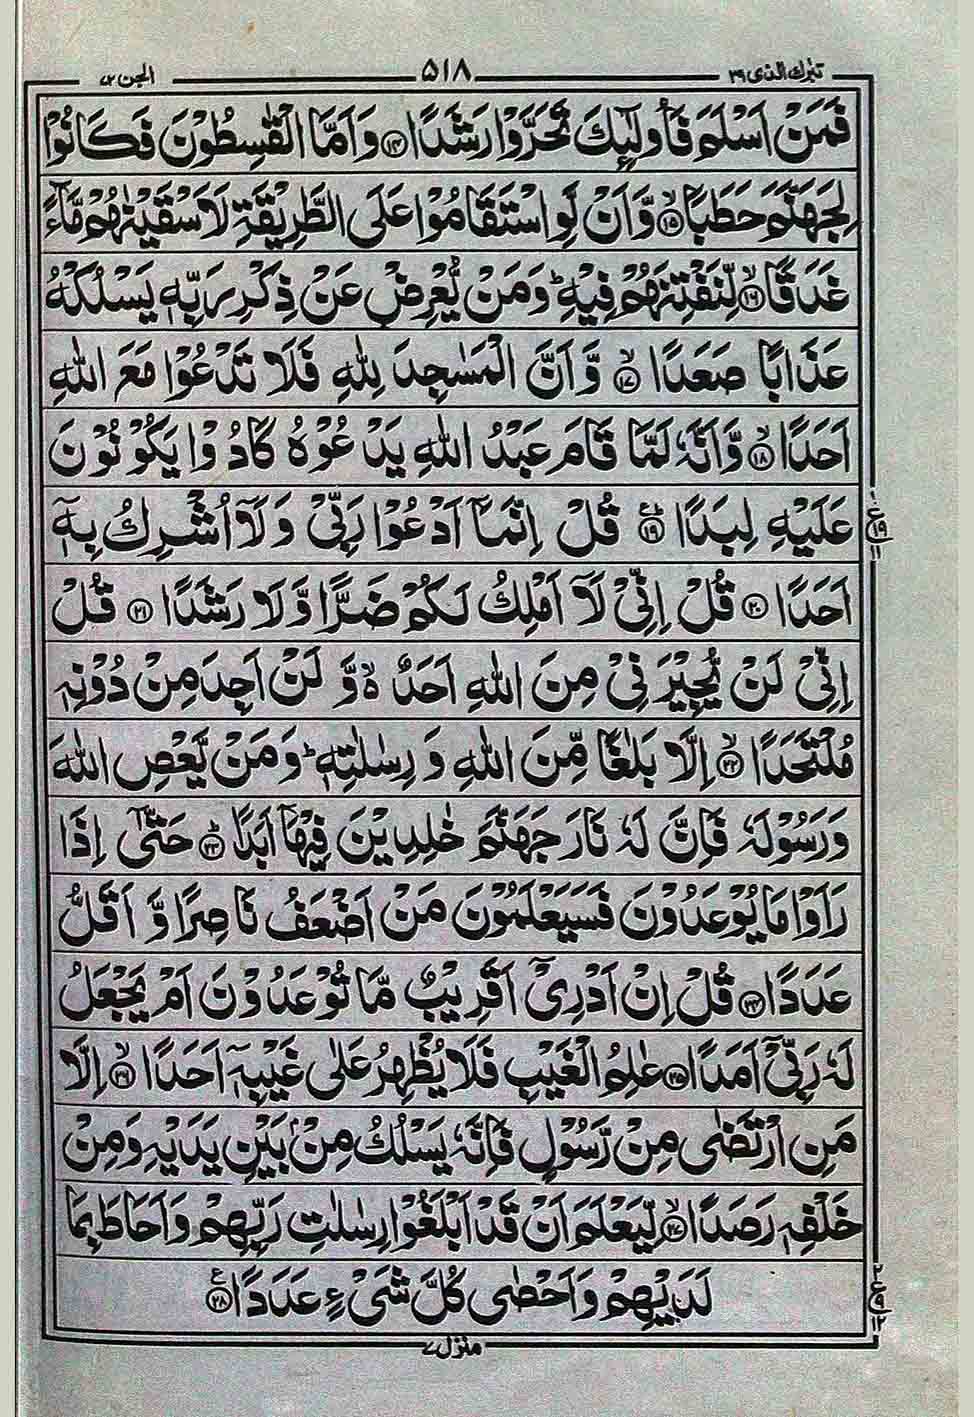 تبٰرك الذی ٢٩
٥١٨
الجن ٧٢
فَمَنْ اَسْلَمَ فَاُولٰٓئِكَ تَحَرَّوْا رَشَدًا ﴿١٤﴾ وَ اَمَّا الْقٰسِطُوْنَ فَكَانُوْا
لِجَهَنَّمَ حَطَبًا ﴿١٥﴾ۙ وَّ اَنْ لَّوِ اسْتَقَامُوْا عَلَى الطَّرِيْقَةِ لَاَسْقَيْنٰهُمْ مَّآءً
غَدَقًا ﴿١٦﴾ۙ لِّنَفْتِنَهُمْ فِيْهِ ؕ وَ مَنْ يُّعْرِضْ عَنْ ذِكْرِ رَبِّهٖ يَسْلُكْهُ
عَذَابًا صَعَدًا ﴿١٧﴾ۙ وَّ اَنَّ الْمَسٰجِدَ لِلّٰهِ فَلَا تَدْعُوْا مَعَ اللّٰهِ
اَحَدًا ﴿١٨﴾ۙ وَّ اَنَّهٗ لَمَّا قَامَ عَبْدُ اللّٰهِ يَدْعُوْهُ كَادُوْا يَكُوْنُوْنَ
عَلَيْهِ لِبَدًا ﴿١٩﴾ؕ قُلْ اِنَّمَاۤ اَدْعُوْا رَبِّیْ وَ لَاۤ اُشْرِكُ بِهٖۤ
اَحَدًا ﴿٢٠﴾ قُلْ اِنِّیْ لَاۤ اَمْلِكُ لَكُمْ ضَرًّا وَّ لَا رَشَدًا ﴿٢١﴾ قُلْ
اِنِّیْ لَنْ يُّجِيْرَنِیْ مِنَ اللّٰهِ اَحَدٌ ۙ وَّ لَنْ اَجِدَ مِنْ دُوْنِهٖ
مُلْتَحَدًا ﴿٢٢﴾ۙ اِلَّا بَلٰغًا مِّنَ اللّٰهِ وَ رِسٰلٰتِهٖ ؕ وَ مَنْ يَّعْصِ اللّٰهَ
وَ رَسُوْلَهٗ فَاِنَّ لَهٗ نَارَ جَهَنَّمَ خٰلِدِيْنَ فِيْهَاۤ اَبَدًا ﴿٢٣﴾ؕ حَتّٰۤی اِذَا
رَاَوْا مَا يُوْعَدُوْنَ فَسَيَعْلَمُوْنَ مَنْ اَضْعَفُ نَاصِرًا وَّ اَقَلُّ
عَدَدًا ﴿٢٤﴾ قُلْ اِنْ اَدْرِیْۤ اَقَرِيْبٌ مَّا تُوْعَدُوْنَ اَمْ يَجْعَلُ
لَهٗ رَبِّیْۤ اَمَدًا ﴿٢٥﴾ عٰلِمُ الْغَيْبِ فَلَا يُظْهِرُ عَلٰی غَيْبِهٖۤ اَحَدًا ﴿٢٦﴾ۙ اِلَّا
مَنِ ارْتَضٰی مِنْ رَّسُوْلٍ فَاِنَّهٗ يَسْلُكُ مِنْۢ بَيْنِ يَدَيْهِ وَ مِنْ
خَلْفِهٖ رَصَدًا ﴿٢٧﴾ۙ لِّيَعْلَمَ اَنْ قَدْ اَبْلَغُوْا رِسٰلٰتِ رَبِّهِمْ وَ اَحَاطَ بِمَا
لَدَيْهِمْ وَ اَحْصٰی كُلَّ شَیْءٍ عَدَدًا ﴿٢٨﴾
منزل ٧